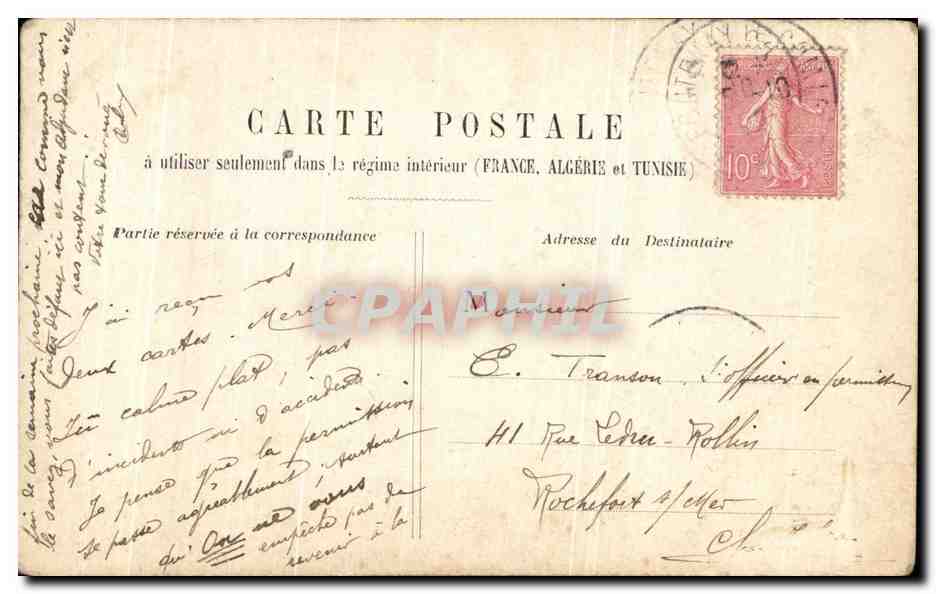 CARTE POSTALE
à utiliser seulement dans le régime intérieur (FRANCE, ALGÉRIE et TUNISIE)
Partie réservée à la correspondance
Adresse du Destinataire
10c
J'ai reçu vos
deux cartes. Merci.
Ici calme plat, pas
d'incidents ni d'accidents.
Je pense que la permission
se passe agréablement, surtout
qu'on ne vous
empêche pas de
revenir à la
fin de la semaine prochaine comme vous
le savez, vous faites défaut ici et mon adjudant n'est
pas content.
Votre tout dévoué
Monsieur
E. Transon, S/officier en permission
41 Rue Ledru-Rollin
Rochefort s/Mer
CPAPHIL